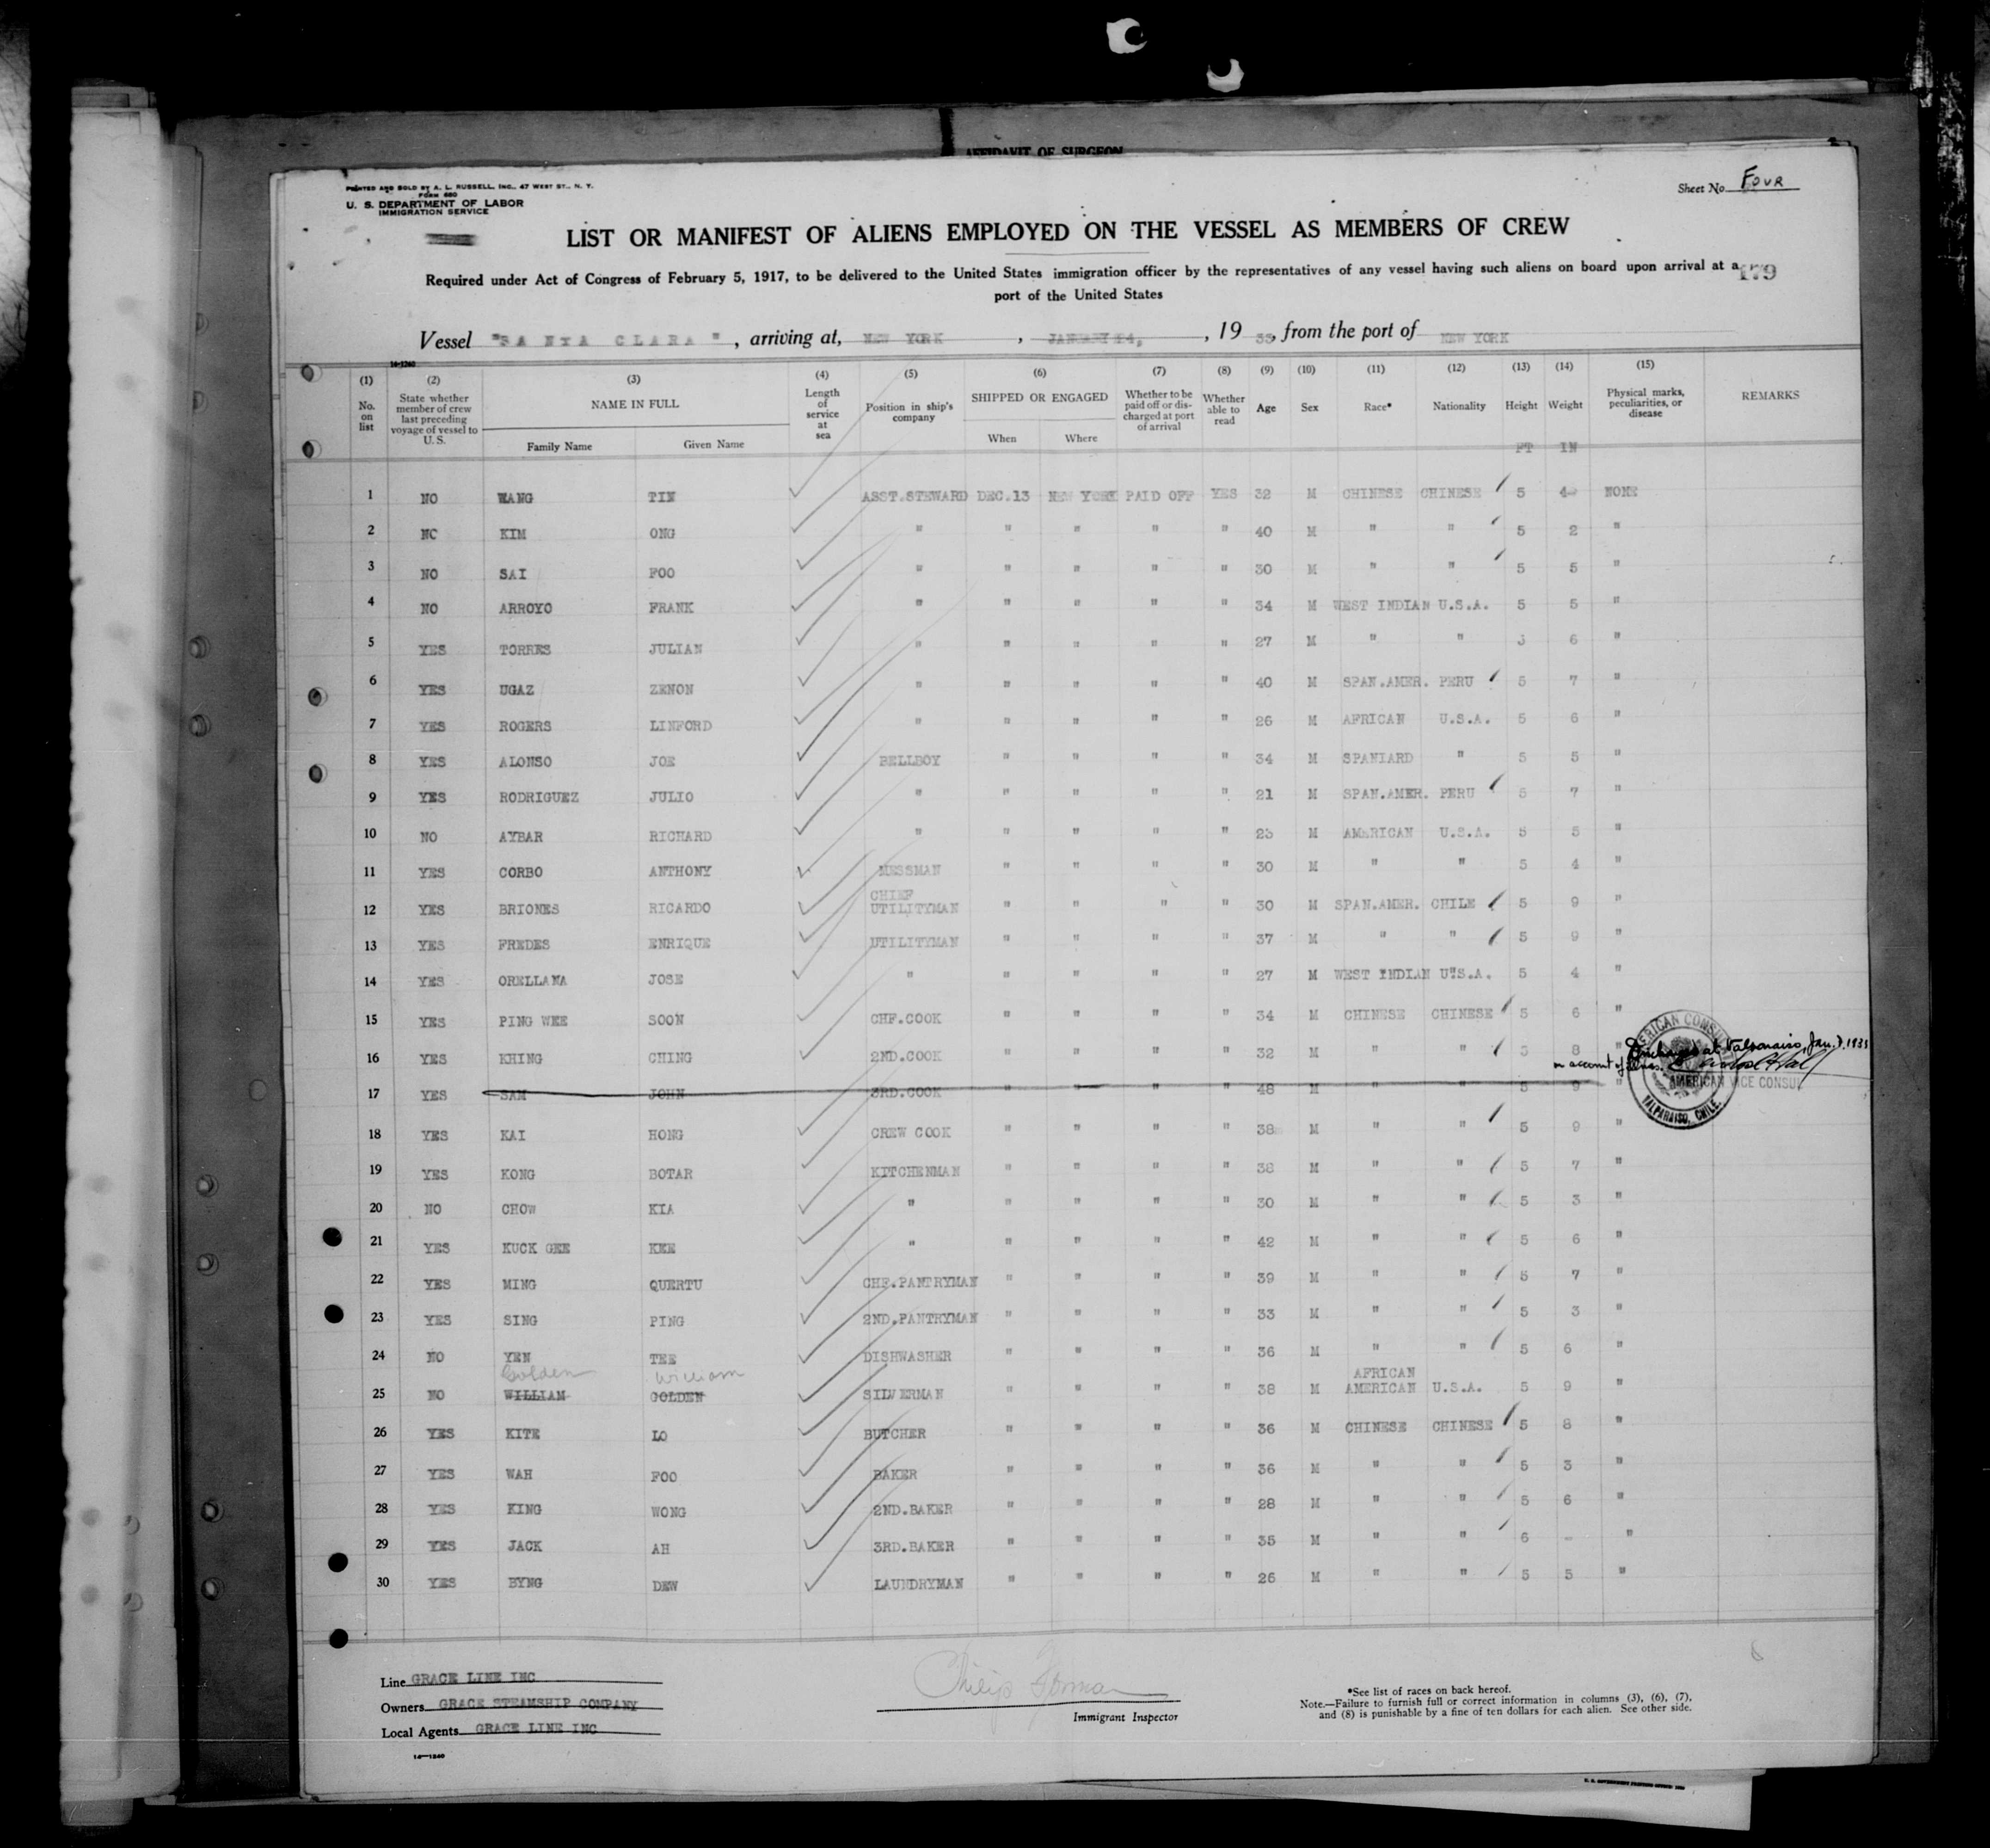 AFFIDAVIT OF SURGEON
PRINTED AND SOLD BY A. L. RUSSELL, INC., 47 WEST ST., N. Y.
FORM 660
U. S. DEPARTMENT OF LABOR
IMMIGRATION SERVICE
Sheet No. FOUR
LIST OR MANIFEST OF ALIENS EMPLOYED ON THE VESSEL AS MEMBERS OF CREW
Required under Act of Congress of February 5, 1917, to be delivered to the United States immigration officer by the representatives of any vessel having such aliens on board upon arrival at a
port of the United States
179
Vessel "SANTA CLARA", arriving at, NEW YORK, JANUARY 24, 1933, from the port of NEW YORK
(1) No. on list (2) State whether member of crew last preceding voyage of vessel to U. S. (3) NAME IN FULL Family Name Given Name (4) Length of service at sea (5) Position in ship's company (6) SHIPPED OR ENGAGED When Where (7) Whether to be paid off or discharged at port of arrival (8) Whether able to read (9) Age (10) Sex (11) Race* (12) Nationality (13) Height (14) Weight (15) Physical marks, peculiarities, or disease REMARKS
FT IN
1 NO WANG TIN ASST.STEWARD DEC.13 NEW YORK PAID OFF YES 32 M CHINESE CHINESE 5 4 NONE
2 NO KIM ONG " " " " " 40 M " " 5 2 "
3 NO SAI FOO " " " " " 30 M " " 5 5 "
4 NO ARROYO FRANK " " " " " 34 M WEST INDIAN U.S.A. 5 5 "
5 YES TORRES JULIAN " " " " " 27 M " " 5 6 "
6 YES UGAZ ZENON " " " " " 40 M SPAN.AMER. PERU 5 7 "
7 YES ROGERS LINFORD " " " " " 26 M AFRICAN U.S.A. 5 6 "
8 YES ALONSO JOE BELLBOY " " " " 34 M SPANIARD " 5 5 "
9 YES RODRIGUEZ JULIO " " " " " 21 M SPAN.AMER. PERU 5 7 "
10 NO AYBAR RICHARD " " " " " 23 M AMERICAN U.S.A. 5 5 "
11 YES CORBO ANTHONY MESSMAN " " " " 30 M " " 5 4 "
12 YES BRIONES RICARDO CHIEF UTILITYMAN " " " " 30 M SPAN.AMER. CHILE 5 9 "
13 YES FREDES ENRIQUE UTILITYMAN " " " " 37 M " " 5 9 "
14 YES ORELLANA JOSE " " " " " 27 M WEST INDIAN U.S.A. 5 4 "
15 YES PING WEE SOON CHF.COOK " " " " 34 M CHINESE CHINESE 5 6 "
16 YES KHING CHING 2ND.COOK " " " " 32 M " " 5 8 "
Discharged at Valparaiso, Jan. 7, 1933
on account of illness.
17 YES SAM JOHN 3RD.COOK " " " " 48 M " " 5 9 "
AMERICAN CONSUL
AMERICAN VICE CONSUL
VALPARAISO, CHILE.
18 YES KAI HONG CREW COOK " " " " 38 M " " 5 9 "
19 YES KONG BOTAR KITCHENMAN " " " " 38 M " " 5 7 "
20 NO CHOW KIA " " " " " 30 M " " 5 3 "
21 YES KUCK GEE KEE " " " " " 42 M " " 5 6 "
22 YES MING QUERTU CHF.PANTRYMAN " " " " 39 M " " 5 7 "
23 YES SING PING 2ND.PANTRYMAN " " " " 33 M " " 5 3 "
24 NO YEN TEE DISHWASHER " " " " 36 M " " 5 6 "
Golden William AFRICAN
25 NO WILLIAM GOLDEN SILVERMAN " " " " 38 M AMERICAN U.S.A. 5 9 "
26 YES KITE LO BUTCHER " " " " 36 M CHINESE CHINESE 5 8 "
27 YES WAH FOO BAKER " " " " 36 M " " 5 3 "
28 YES KING WONG 2ND.BAKER " " " " 28 M " " 5 6 "
29 YES JACK AH 3RD.BAKER " " " " 35 M " " 6 - "
30 YES BYNG DEW LAUNDRYMAN " " " " 26 M " " 5 5 "
Line GRACE LINE INC
Owners GRACE STEAMSHIP COMPANY
Local Agents GRACE LINE INC
14-1240
Philip Forman
Immigrant Inspector
*See list of races on back hereof.
Note.—Failure to furnish full or correct information in columns (3), (6), (7),
and (8) is punishable by a fine of ten dollars for each alien. See other side.